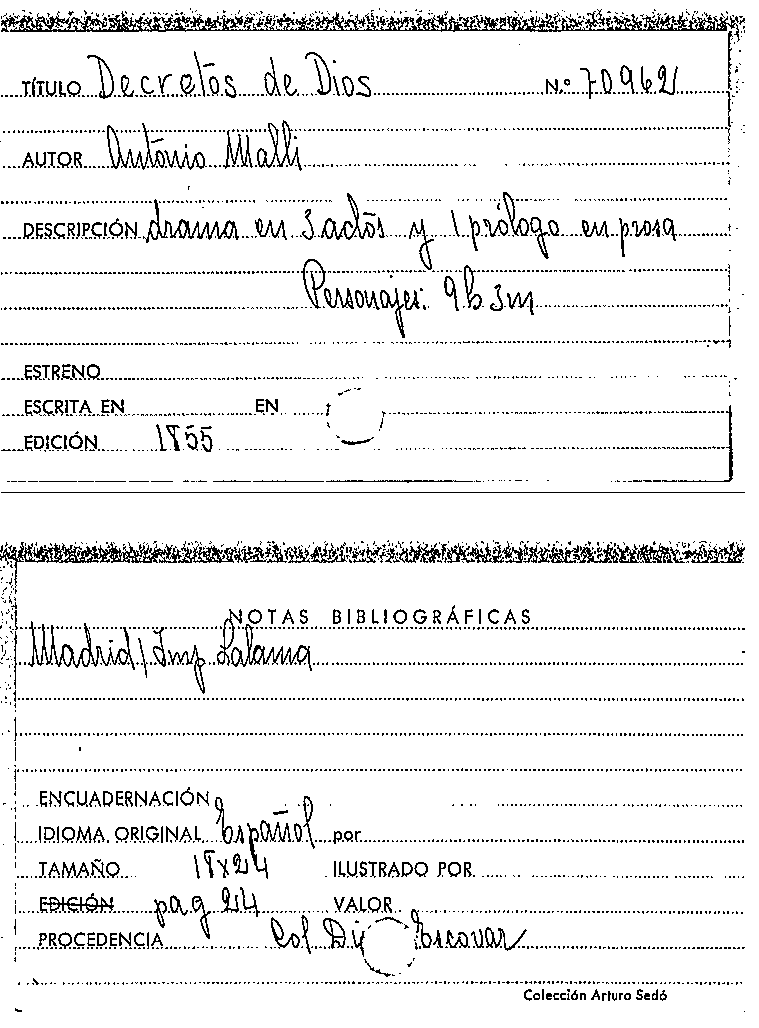 TÍTULO Decretos de Dios N.º 70962
AUTOR Antonio Malli
DESCRIPCIÓN drama en 3 actos y 1 prólogo en prosa
Personajes: 9h 3m
ESTRENO
ESCRITA EN EN
EDICIÓN 1855
NOTAS BIBLIOGRÁFICAS
Madrid / Imp Lalama
ENCUADERNACIÓN
IDIOMA ORIGINAL Español por
TAMAÑO 18x24 ILUSTRADO POR
EDICIÓN pag 24 VALOR
PROCEDENCIA Col Escovar
Colección Arturo Sedó